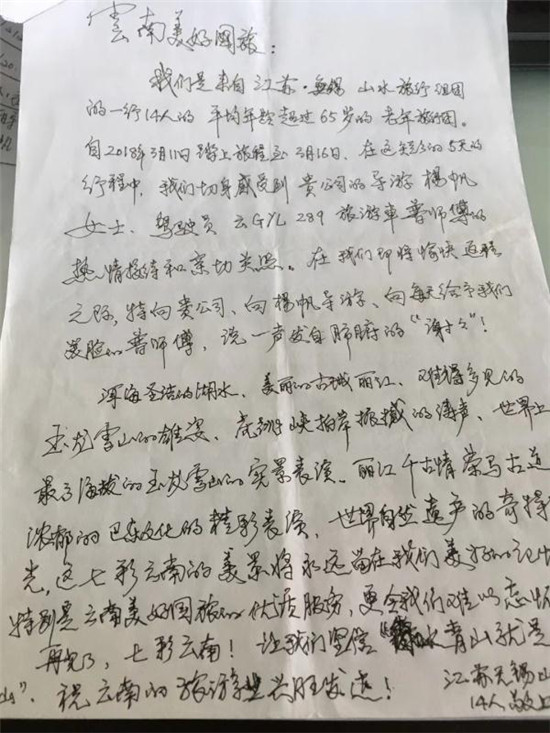 雲南美好國旅:
我们是来自江苏·無锡山水旅行组团
的一行14人的平均年龄超过65岁的老年旅行团。
自2018年3月11日踏上旅程至3月16日,在这短短的5天的
行程中,我们切身感受到贵公司的导游楊帆
女士、驾驶员云G 289旅游車普师傅的
热情接待和亲切关照。在我们即将愉快返程
之际,特向贵公司、向楊帆导游、向每天给予我们
的普师傅,说一声发自肺腑的“謝謝”!
洱海圣洁的湖水、美丽的古城丽江、难得多见的
玉龙雪山的雄姿、虎跳峡拍岸振撼的涛声、世界上
最高海拔的玉龙雪山的实景表演、丽江千古情茶马古道
浓郁的文化的精彩表演,世界自然遗产的奇特
光,这七彩云南的美景将永远留在我们美好的记忆
特别是云南美好国旅的优质服务,更令我们难以忘怀
再见了,七彩云南!让我们坚信“水青山就是
山”。祝云南的旅游業兴旺发达!
江苏无锡山
14人